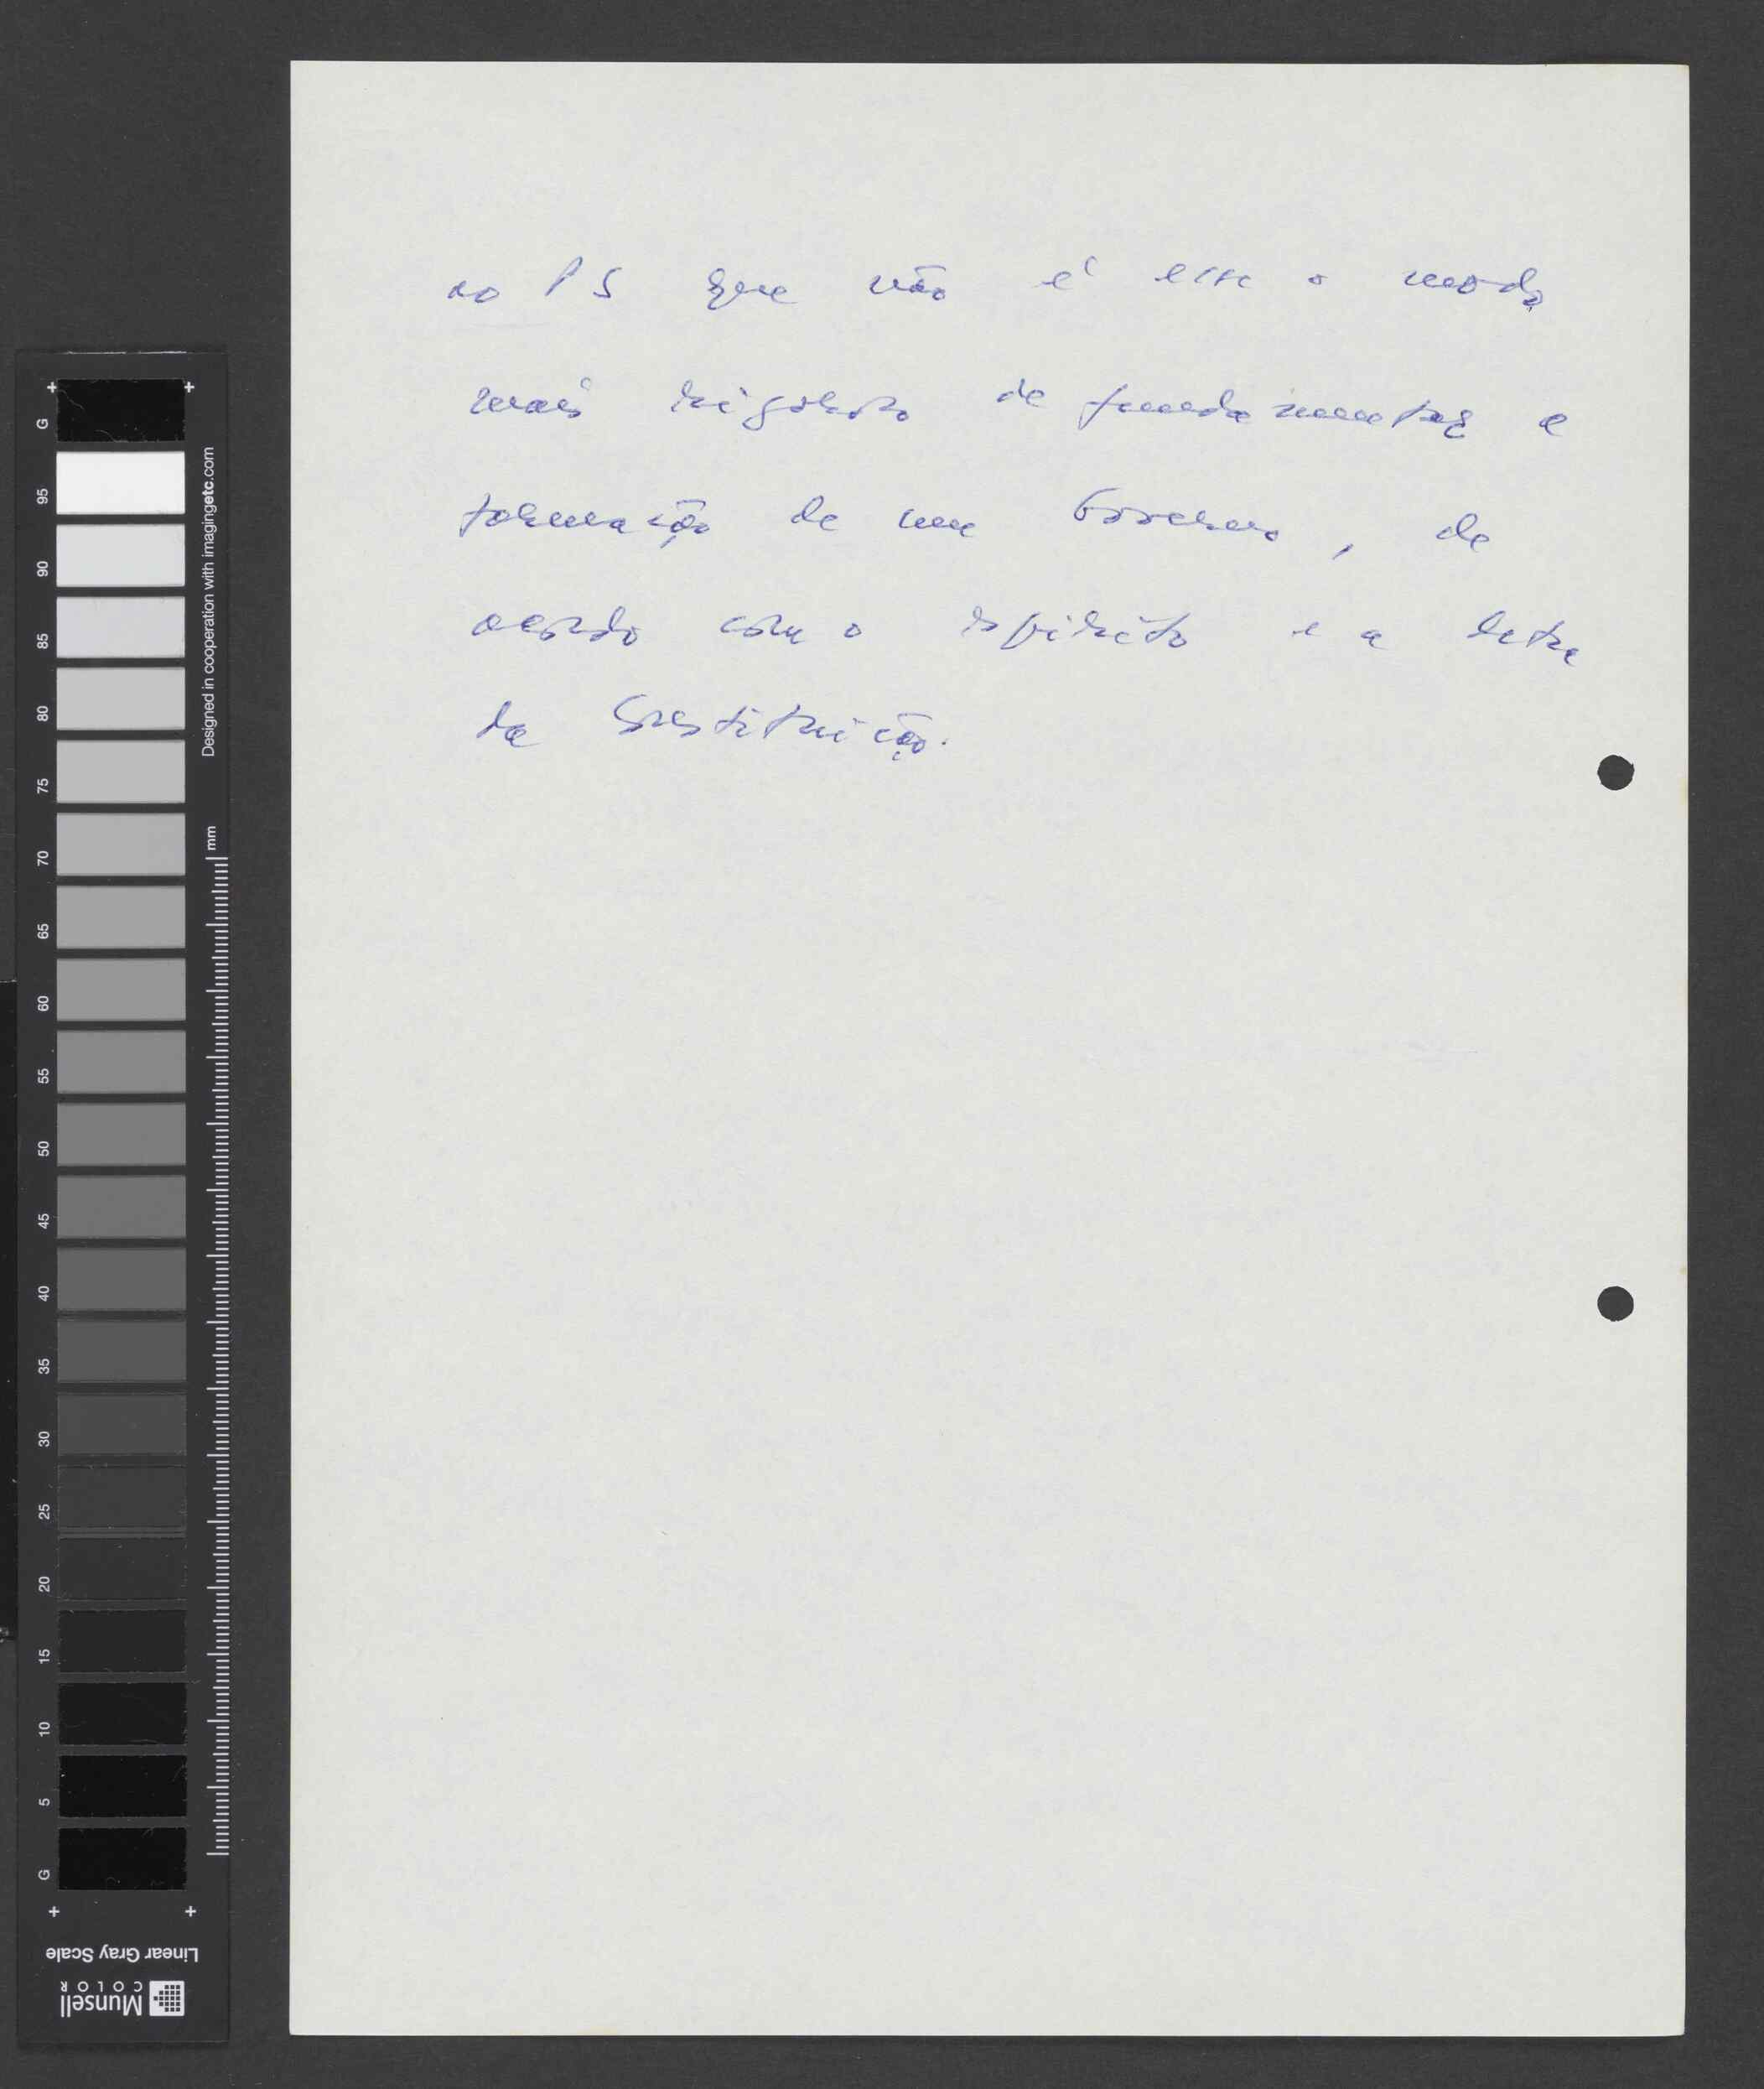 ao PS que não é esse o modo
mais rigoroso de fundamentar a
formação de um Governo, de
acordo com o espírito e a letra
da Constituição.
G 95 90 85 80 75 70 65 60 55 50 45 40 35 30 25 20 15 10 5 G
Designed in cooperation with imagingetc.com
mm
Linear Gray Scale
Munsell
COLOR